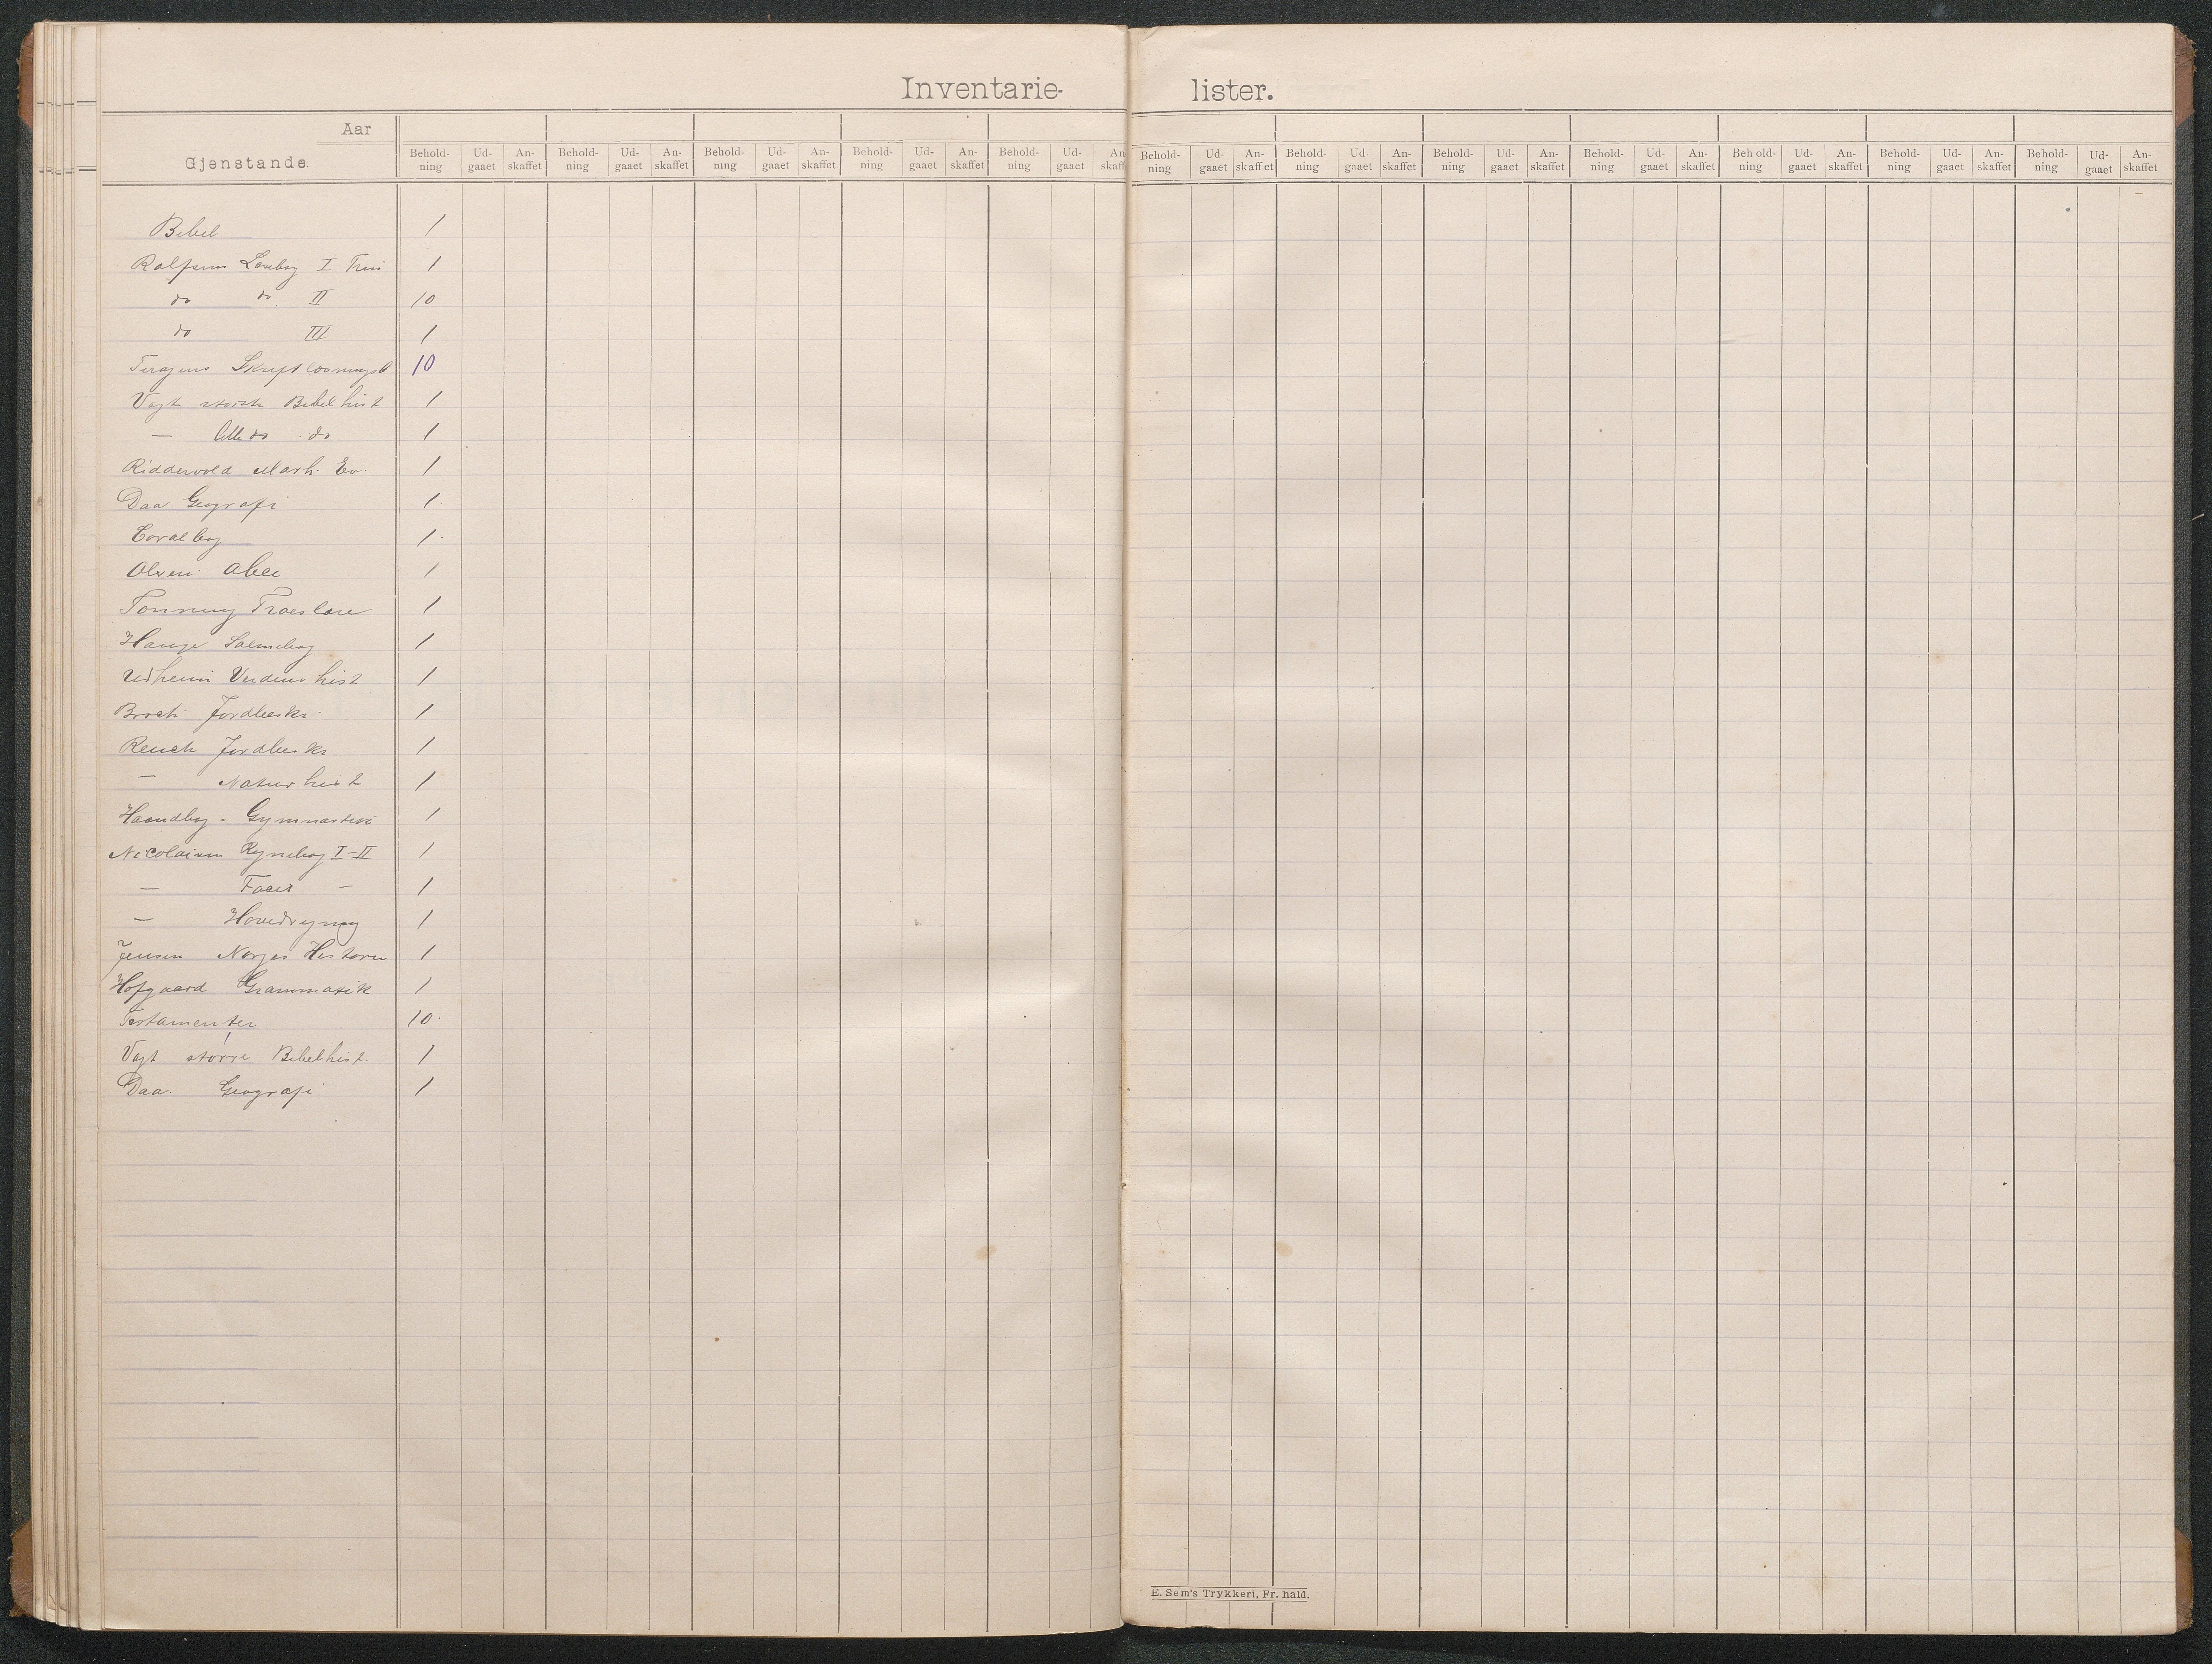 Inventarie- lister.
Aar
Gjenstande.
Behold-ning Ud-gaaet An-skaffet Behold-ning Ud-gaaet An-skaffet Behold-ning Ud-gaaet An-skaffet Behold-ning Ud-gaaet An-skaffet Behold-ning Ud-gaaet An-skaff Behold-ning Ud-gaaet An-skaffet Behold-ning Ud-gaaet An-skaffet Behold-ning Ud-gaaet An-skaffet Behold-ning Ud-gaaet An-skaffet Behold-ning Ud-gaaet An-skaffet Behold-ning Ud-gaaet An-skaffet Behold-ning Ud-gaaet An-skaffet
Bibel 1
Rolfsens Læsebog I Trin 1
do do. II 10
do III 1
10
Vogt større Bibelhist 1
— lille do do 1
Riddervold Mark. Ev. 1
Daa Geografi 1
Coralbog 1
Olsen Abec 1
Tonning 1
Hauge Salmebog 1
Udheim Verdens hist 1
Broch Jordbeskr. 1
Reusch Jordbeskr 1
— Naturhist 1
Haandbog - Gymnastik 1
Nicolaisen Regnebog I-II 1
— Facit — 1
— Hovedregning 1
Jensen Norges Historie 1
Hofgaard Grammatik 1
Testamenter 10
Vogt større Bibelhist. 1
Daa. Geografi 1
E. Sem's Trykkeri, Fr. hald.